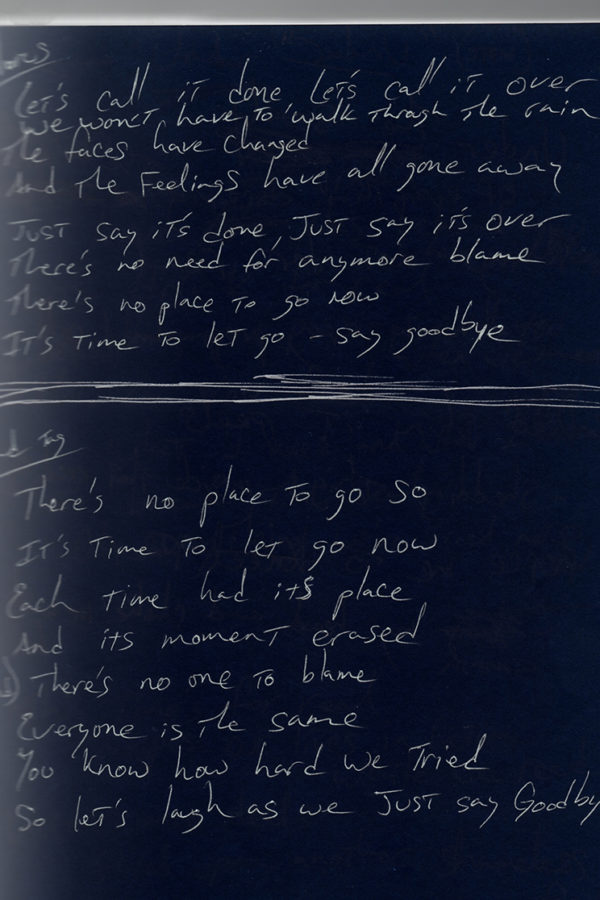 Let's call it done Let's call it over
We won't have to walk through the rain
The faces have changed
And the Feelings have all gone away
Just say it's done, Just say it's over
There's no need for anymore blame
There's no place to go now
It's Time To let go - say goodbye
Tag
There's no place To go so
It's Time To let go now
Each time had its place
And its moment erased
There's no one To blame
Everyone is the same
You know how hard we Tried
So let's laugh as we Just say Goodby